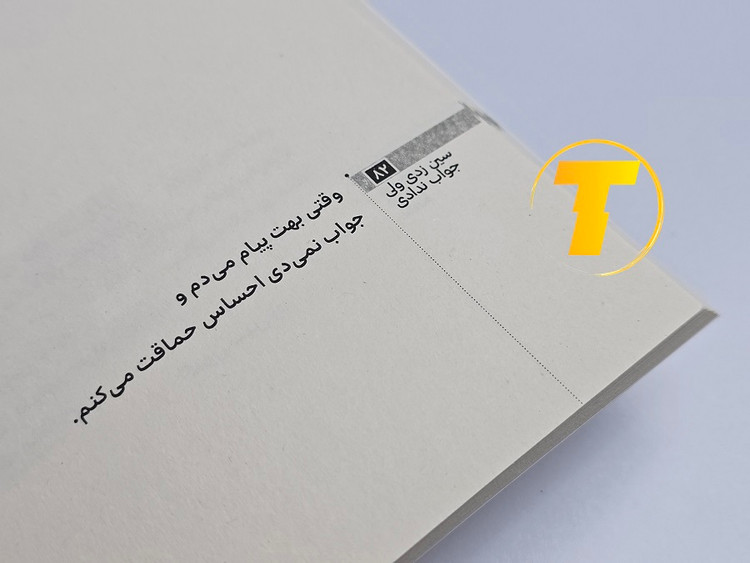 ۸۲
سین زدی ولی
جواب ندادی
وقتی بهت پیام می‌دم و
جواب نمی‌دی احساس حماقت می‌کنم.
T